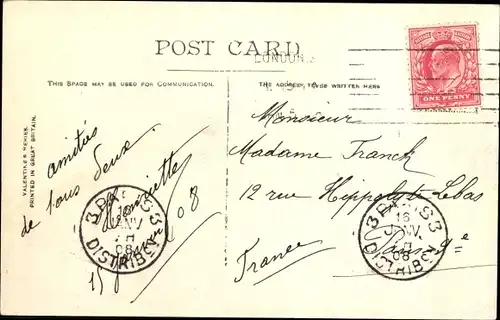 POST CARD
LONDON
THIS SPACE MAY BE USED FOR COMMUNICATION.
THE ADDRESS TO BE WRITTEN HERE
ONE PENNY
VALENTINE'S SERIES
PRINTED IN GREAT BRITAIN.
amitiés
de tous deux
Henriette
15 08
Monsieur
Madame Franck
12 rue Hippolyte Lebas
Paris 9e
France
3 PARIS 3
16
JANV
08
DISTRIBÉON
3 PARIS 3
16
JANV
08
DISTRIBÉON